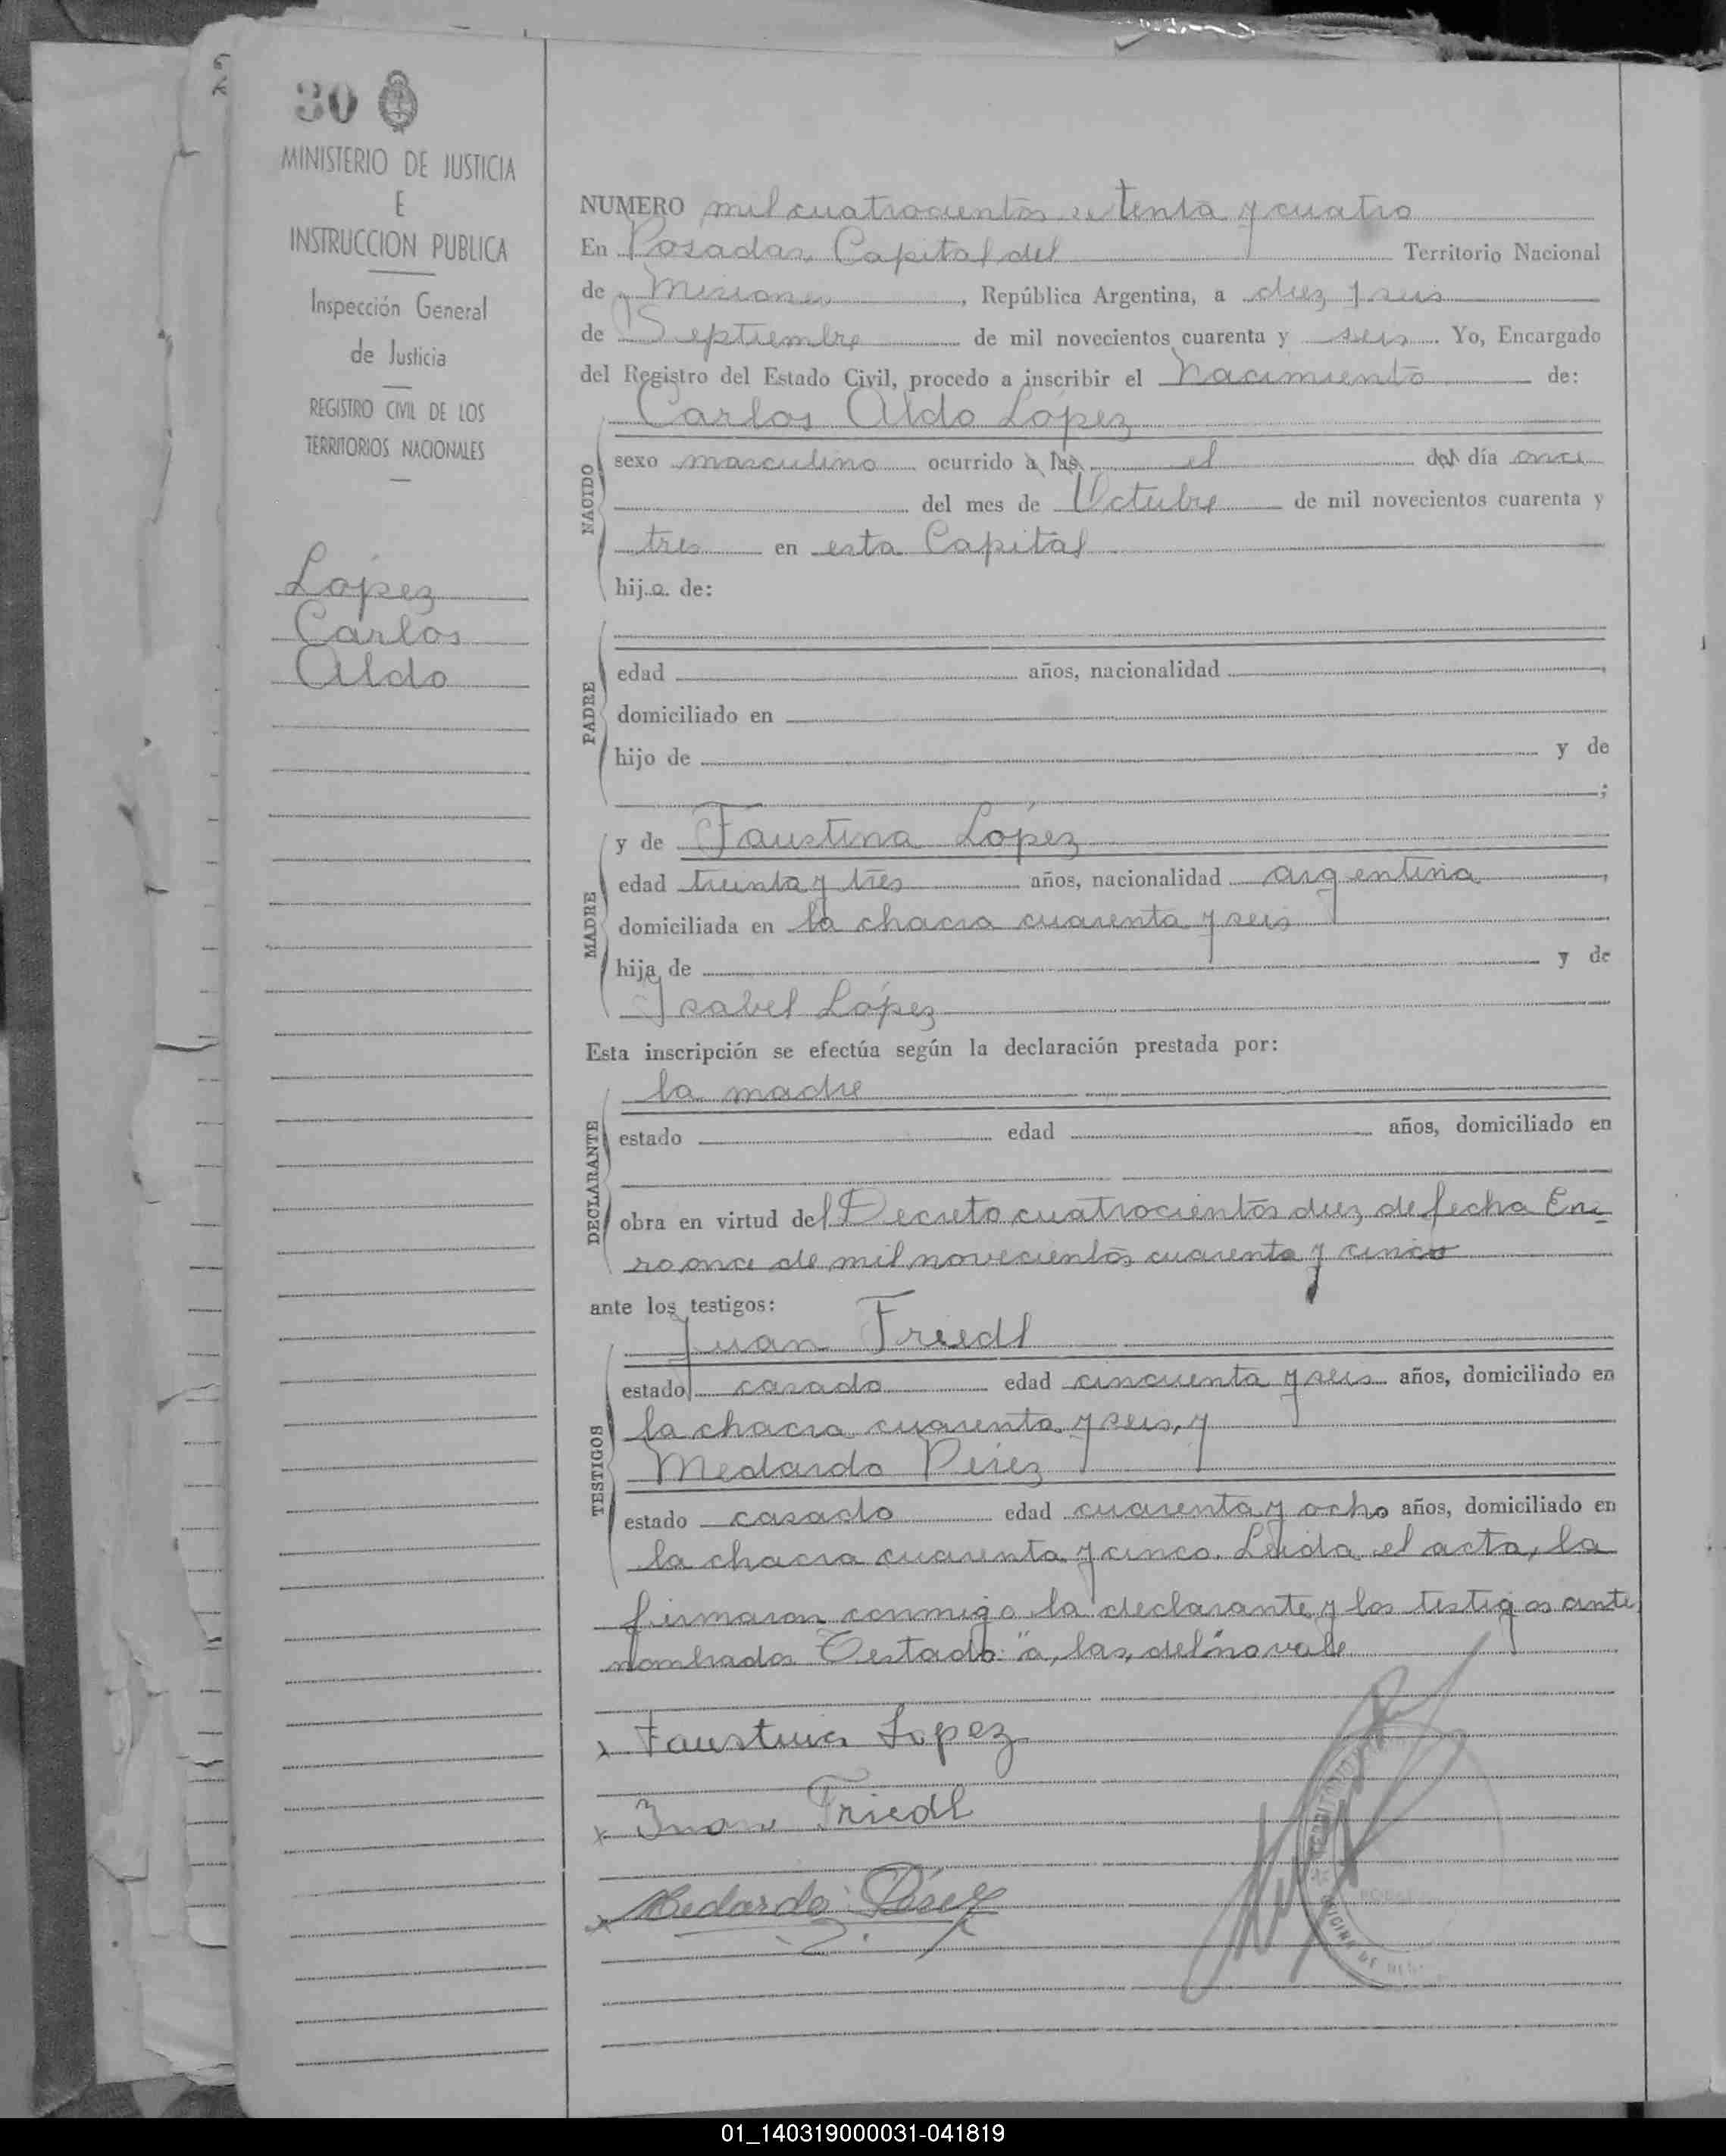 30
MINISTERIO DE JUSTICIA
E
INSTRUCCION PUBLICA
Inspección General
de Justicia
REGISTRO CIVIL DE LOS
TERRITORIOS NACIONALES
López
Carlos
Aldo
NUMERO mil cuatrocientos setenta y cuatro
En Posadas, Capital del Territorio Nacional
de Misiones, República Argentina, a diez y seis
de Septiembre de mil novecientos cuarenta y seis. Yo, Encargado
del Registro del Estado Civil, procedo a inscribir el Nacimiento de:
Carlos Aldo López
NACIDO
sexo masculino ocurrido a las el del día once
del mes de Octubre de mil novecientos cuarenta y
tres en esta Capital
hijo de:
PADRE
edad años, nacionalidad ,
domiciliado en
hijo de y de
;
MADRE
y de Faustina López
edad treinta y tres años, nacionalidad argentina,
domiciliada en la chacra cuarenta y seis
hija de y de
Isabel López
Esta inscripción se efectúa según la declaración prestada por:
DECLARANTE
la madre
estado edad años, domiciliado en
obra en virtud del Decreto cuatrocientos diez de fecha Ene-
ro once de mil novecientos cuarenta y cinco
ante los testigos:
TESTIGOS
Juan Friedl
estado casado edad cincuenta y seis años, domiciliado en
la chacra cuarenta y seis, y
Medardo Pérez
estado casado edad cuarenta y ocho años, domiciliado en
la chacra cuarenta y cinco. Leida el acta, la
firmaron conmigo la declarante y los testigos ante
nombrados Testado: "a, las, del" no vale
x Faustina Lopez
x Juan Friedl
x Medardo Pérez
01_140319000031-041819